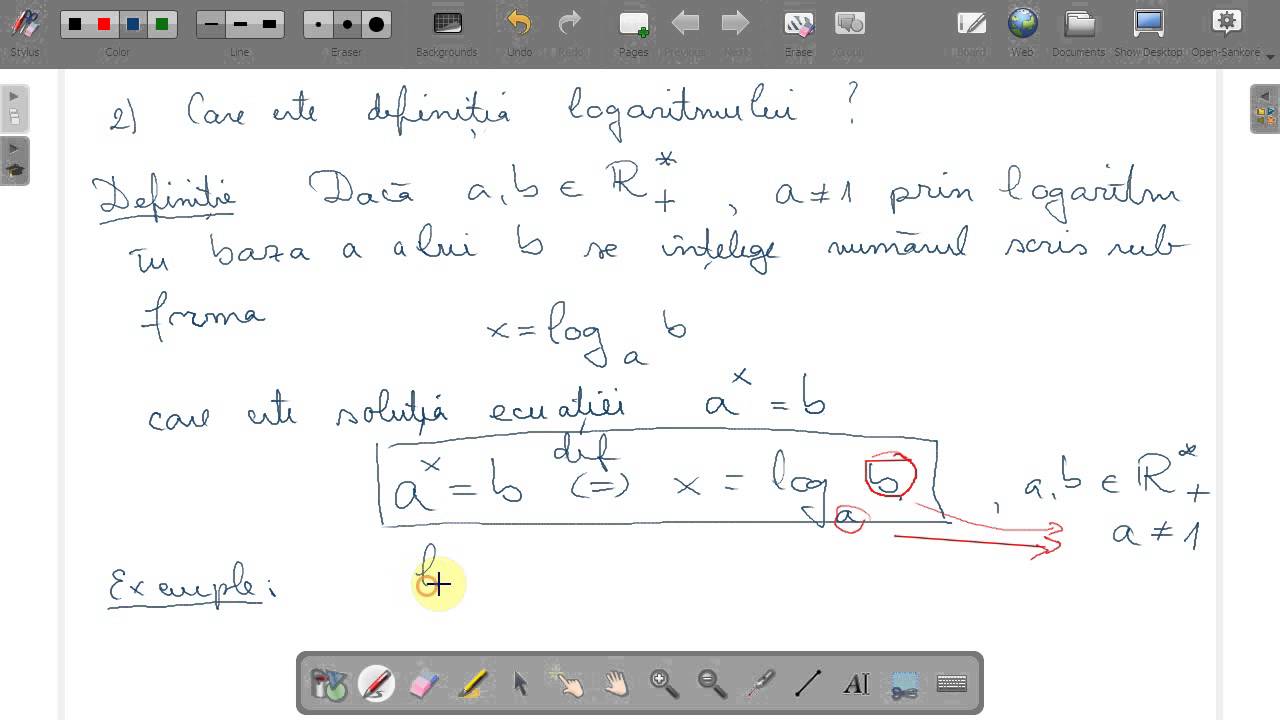 Stylus Color Line Eraser Backgrounds Undo Redo Pages Previous Next Erase Board Web Documents Show Desktop Open-Sankore
2) Care este definiția logaritmului ?
Definitie Dacă a, b ∈ ℝ₊* , a ≠ 1 prin logaritm
în baza a a lui b se înțelege numărul scris sub
forma
x = log_a b
care este soluția ecuației a^x = b
def
a^x = b (=) x = log_a b , a, b ∈ ℝ₊*
a ≠ 1
Exemple:
l
AI